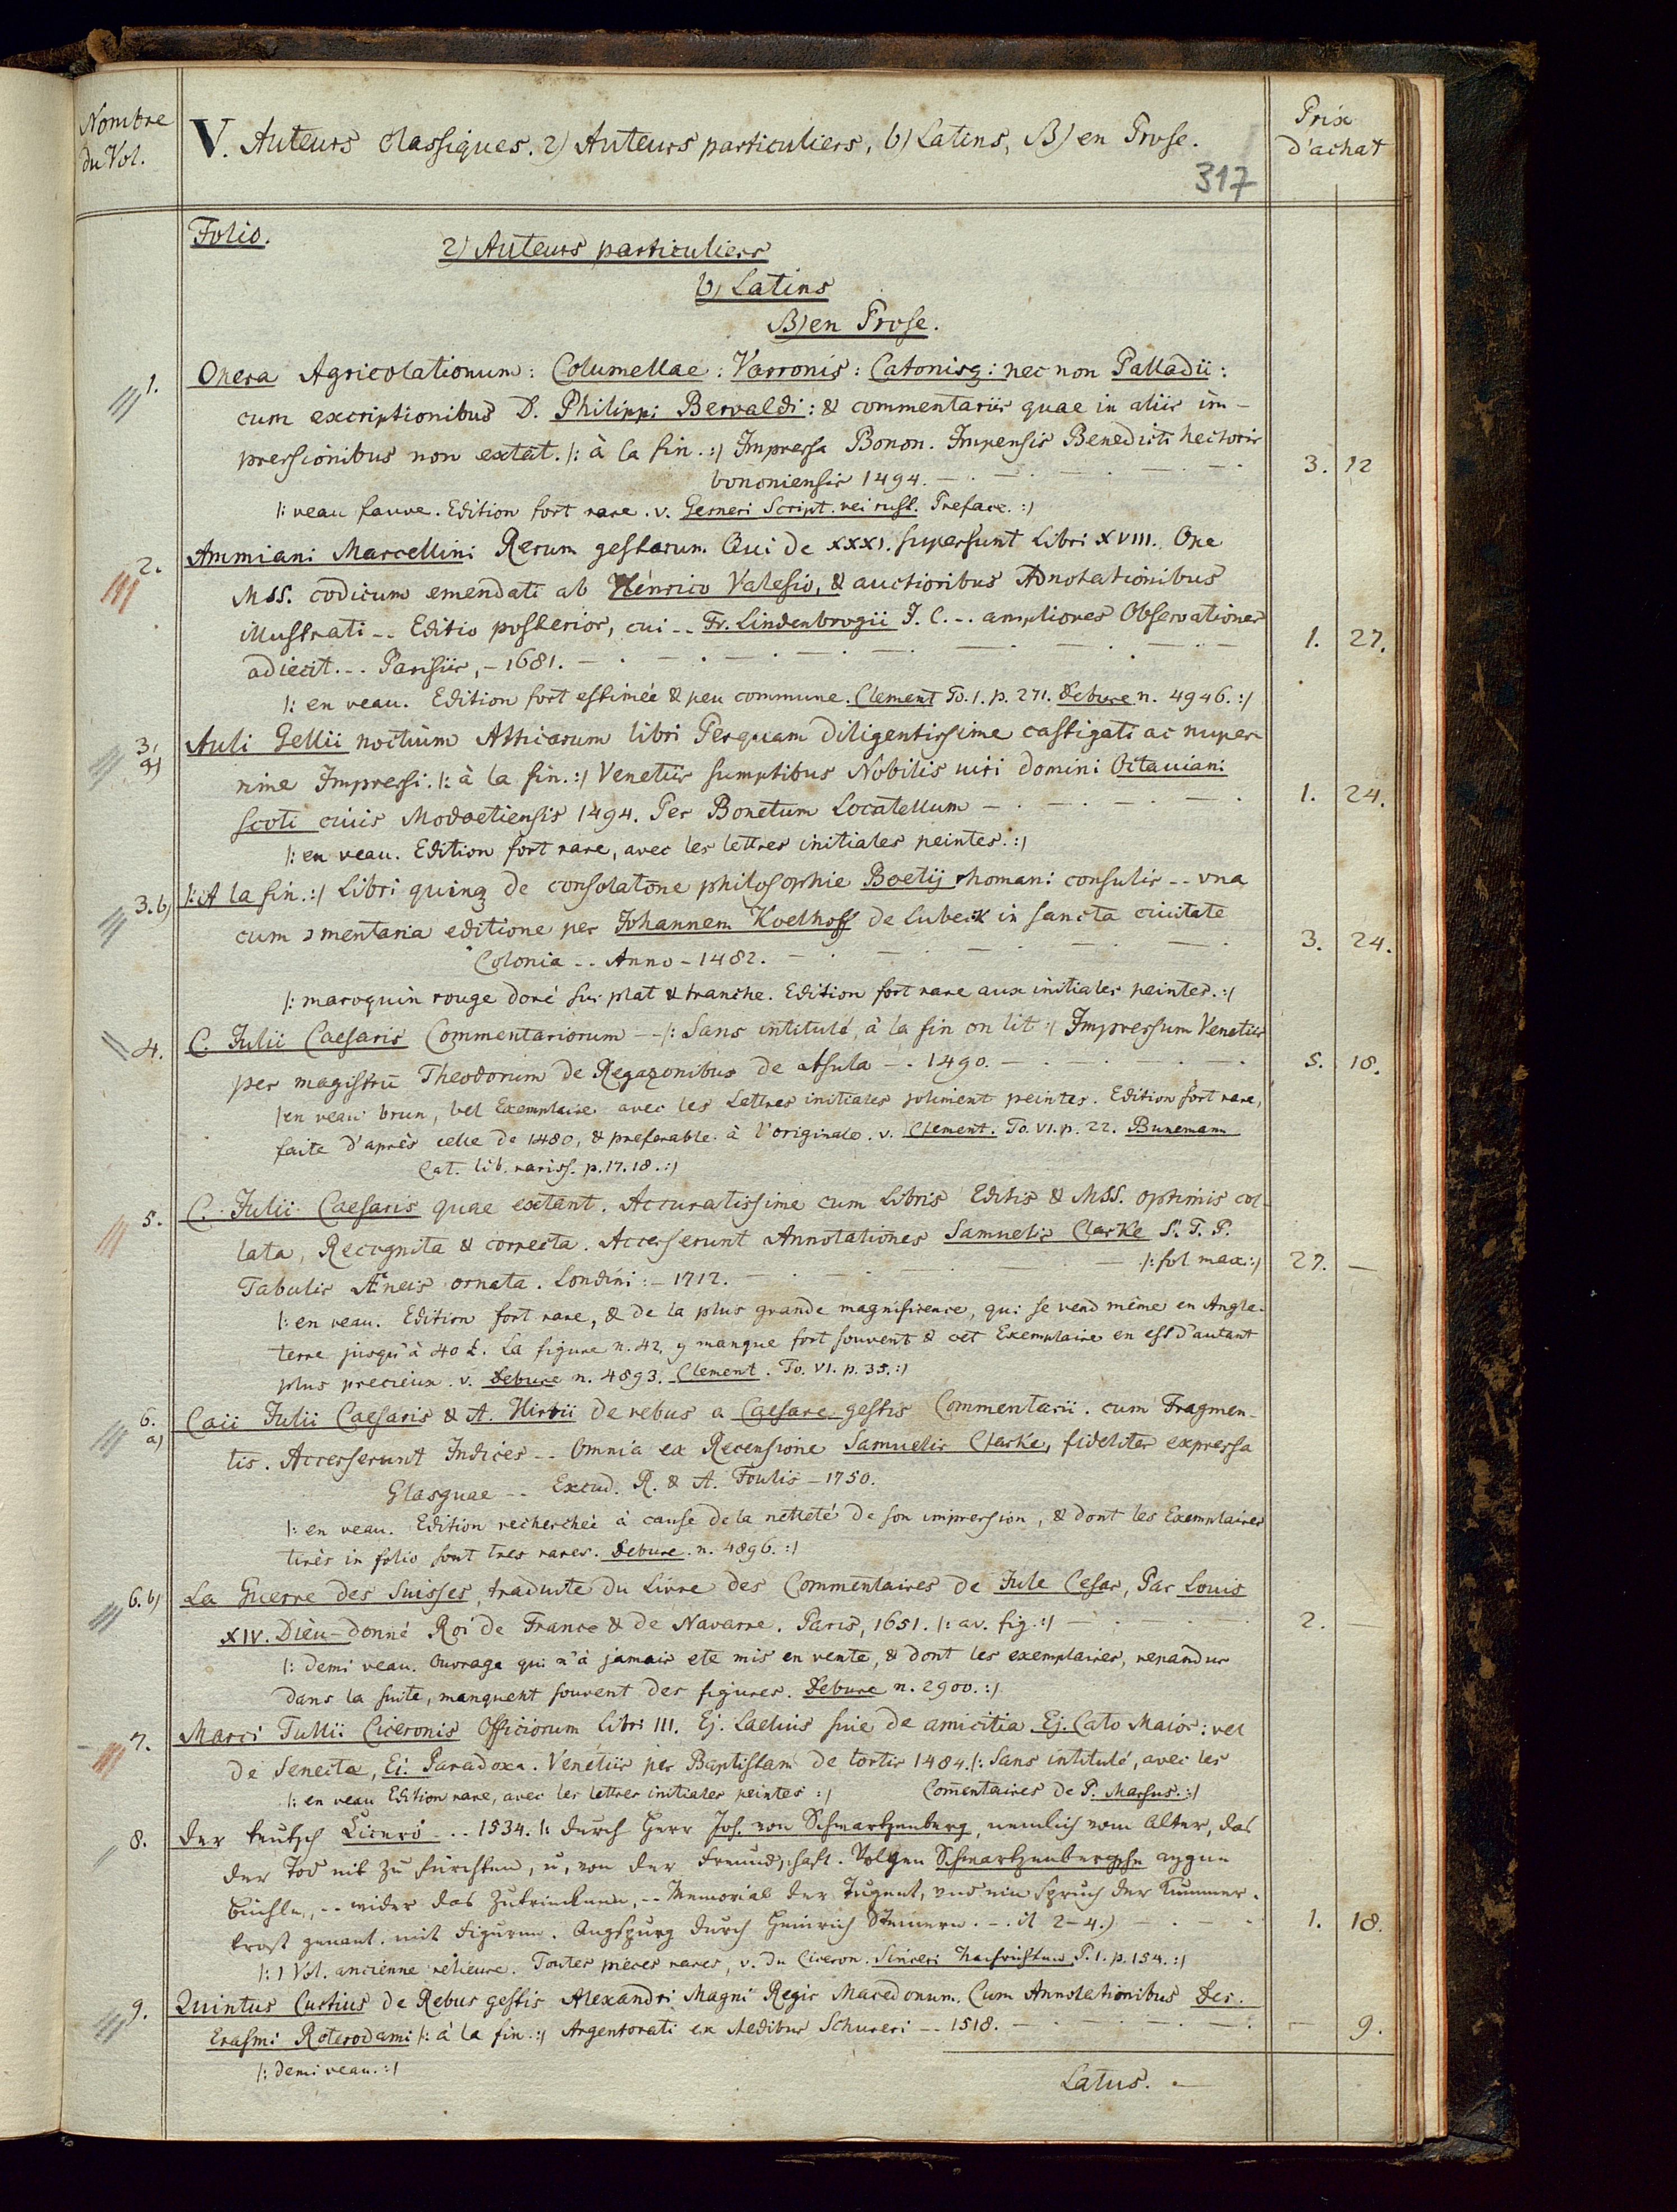 Nombre
du Vol.
V. Auteurs classiques. 2) Auteurs particuliers, b) Latins, B) en Prose.
317
Prix
d'achat
Folio.
2) Auteurs particuliers
b) Latins
B) en Prose.
1. Opera Agricolationum: Columellae: Varronis: Catonisq: nec non Palladii:
cum excriptionibus D. Philippi Beroaldi: & commentariis quae in aliis im-
pressionibus non extat. /: à la fin. :/ Impressa Bonon. Impensis Benedicti hectoris
bononiensis 1494. 3. 12
/: veau fauve. Edition fort rare. v. Gesneri Script. rei rust. Preface. :/
2. Ammiani Marcellini Rerum gestarum Qui de XXXI. supersunt Libri XVIII. Ope
MSS. codicum emendati ab Henrico Valesio, & auctioribus Adnotationibus
illustrati -- Editio posterior, cui -- Fr. Lindenbrogii J. C. -- ampliores Observationes
adiecit. -- Parisiis, - 1681. 1. 27.
/: en veau. Edition fort estimée & peu commune. Clement To. 1. p. 271. Debure n. 4946. :/
3. a) Auli Gellii noctium Atticarum libri Perquam diligentissime castigati ac nuper-
rime Impressi. /: à la fin. :/ Venetiis sumptibus Nobilis uiri domini Octauiani
Scoti ciuis Modoetiensis 1494. Per Bonetum Locatellum 1. 24.
/: en veau. Edition fort rare, avec les lettres initiales peintes. :/
3. b) /: A la fin. :/ Libri quinq de consolatōne philosophie Boetij rhomani consulis -- vna
cum ɔmentaria editione per Johannem Koelhoff de Lubeck in sancta ciuitate
Colonia -- Anno - 1482. 3. 24.
/: maroquin rouge doré sur plat & tranche. Edition fort rare aux initiales peintes. :/
4. C. Julii Caesaris Commentariorum -- /: Sans intitulé, à la fin on lit :/ Impressum Venetiis
per magistrū Theodorum de Regazonibus de Asula -. 1490. 5. 18.
/: en veau brun, bel Exemplaire avec les Lettres initiales joliment peintes. Edition fort rare,
faite d'après celle de 1480, & preferable à l'originale. v. Clement. To. VI. p. 22. Bunemann
Cat. lib. rariss. p. 17. 18. :/
5. C. Julii Caesaris quae extant. Accuratissime cum Libris Editis & MSS. optimis col-
lata, Recognita & correcta. Accesserunt Annotationes Samuelis Clarke S. T. P.
Tabulis Æneis ornata. Londini: - 1712. /: fol max :/ 27. —
/: en veau. Edition fort rare, & de la plus grande magnificence, qui se vend même en Angle-
terre jusqu'à 40 £. La figure n. 42, y manque fort souvent & cet Exemplaire en est d'autant
plus precieux. v. Debure n. 4893. Clement. To. VI. p. 35. :/
6. a) Caii Julii Caesaris & A. Hirtii de rebus a Caesare gestis Commentarii. cum Fragmen-
tis. Accesserunt Indices -- Omnia ex Recensione Samuelis Clarke, fideliter expressa
Glasguae -- Excud. R. & A. Foulis - 1750.
/: en veau. Edition recherchée à cause de la netteté de son impression, & dont les Exemplaires
tirés in folio sont tres rares. Debure. n. 4896. :/
6. b) La Guerre des Suisses, traduite du Livre des Commentaires de Jule Cesar, Par Louis
XIV. Dieu-donné Roi de France & de Navarre. Paris, 1651. /: av. fig. :/ 2. —
/: demi veau. Ouvrage qui n'à jamais ete mis en vente, & dont les exemplaires, repandus
dans la suite, manquent souvent des figures. Debure n. 2900. :/
7. Marci Tullii Ciceronis Officiorum Libri III. Ej. Laelius siue de amicitia Ej. Cato Maior: vel
de Senecta, Ei. Paradoxa. Venetiis per Baptistam de tortis 1484. /: Sans intitulé, avec les
/: en veau Edition rare, avec les lettres initiales peintes :/ Com̄entaires de P. Marsus. :/
8. Der teutsch Cicero -- 1534. /: durch Herr Joh. von Schwartzenberg, nemlich vom Alter, das
der Tod nit zu fürchten, u, von der Freundschaft. Volgen Schwartzenbergsche aygne
büchle, -- wider das Zutrincken, -- Memorial der Tugent, vnd ein Spruch der Kummer-
trost genant. mit Figuren. Augspurg durch Heinrich Steinern. -. it 2-4.) 1. 18.
/: 1 Vol. ancienne relieure. Toutes pieces rares, v. du Ciceron. Sinceri Nachrichten P. 1. p. 154. :/
9. Quintus Curtius de Rebus gestis Alexandri Magni Regis Macedonum. Cum Annotationibus Des.
Erasmi Roterodami /: à la fin :/ Argentorati ex Aedibus Schureri -- 1518. — 9.
/: demi veau. :/
Latus. —